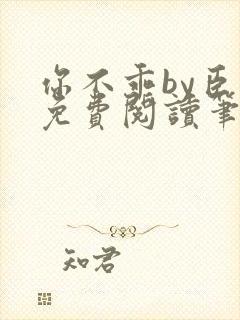 你不乖by臣
免費閱讀筆
知君